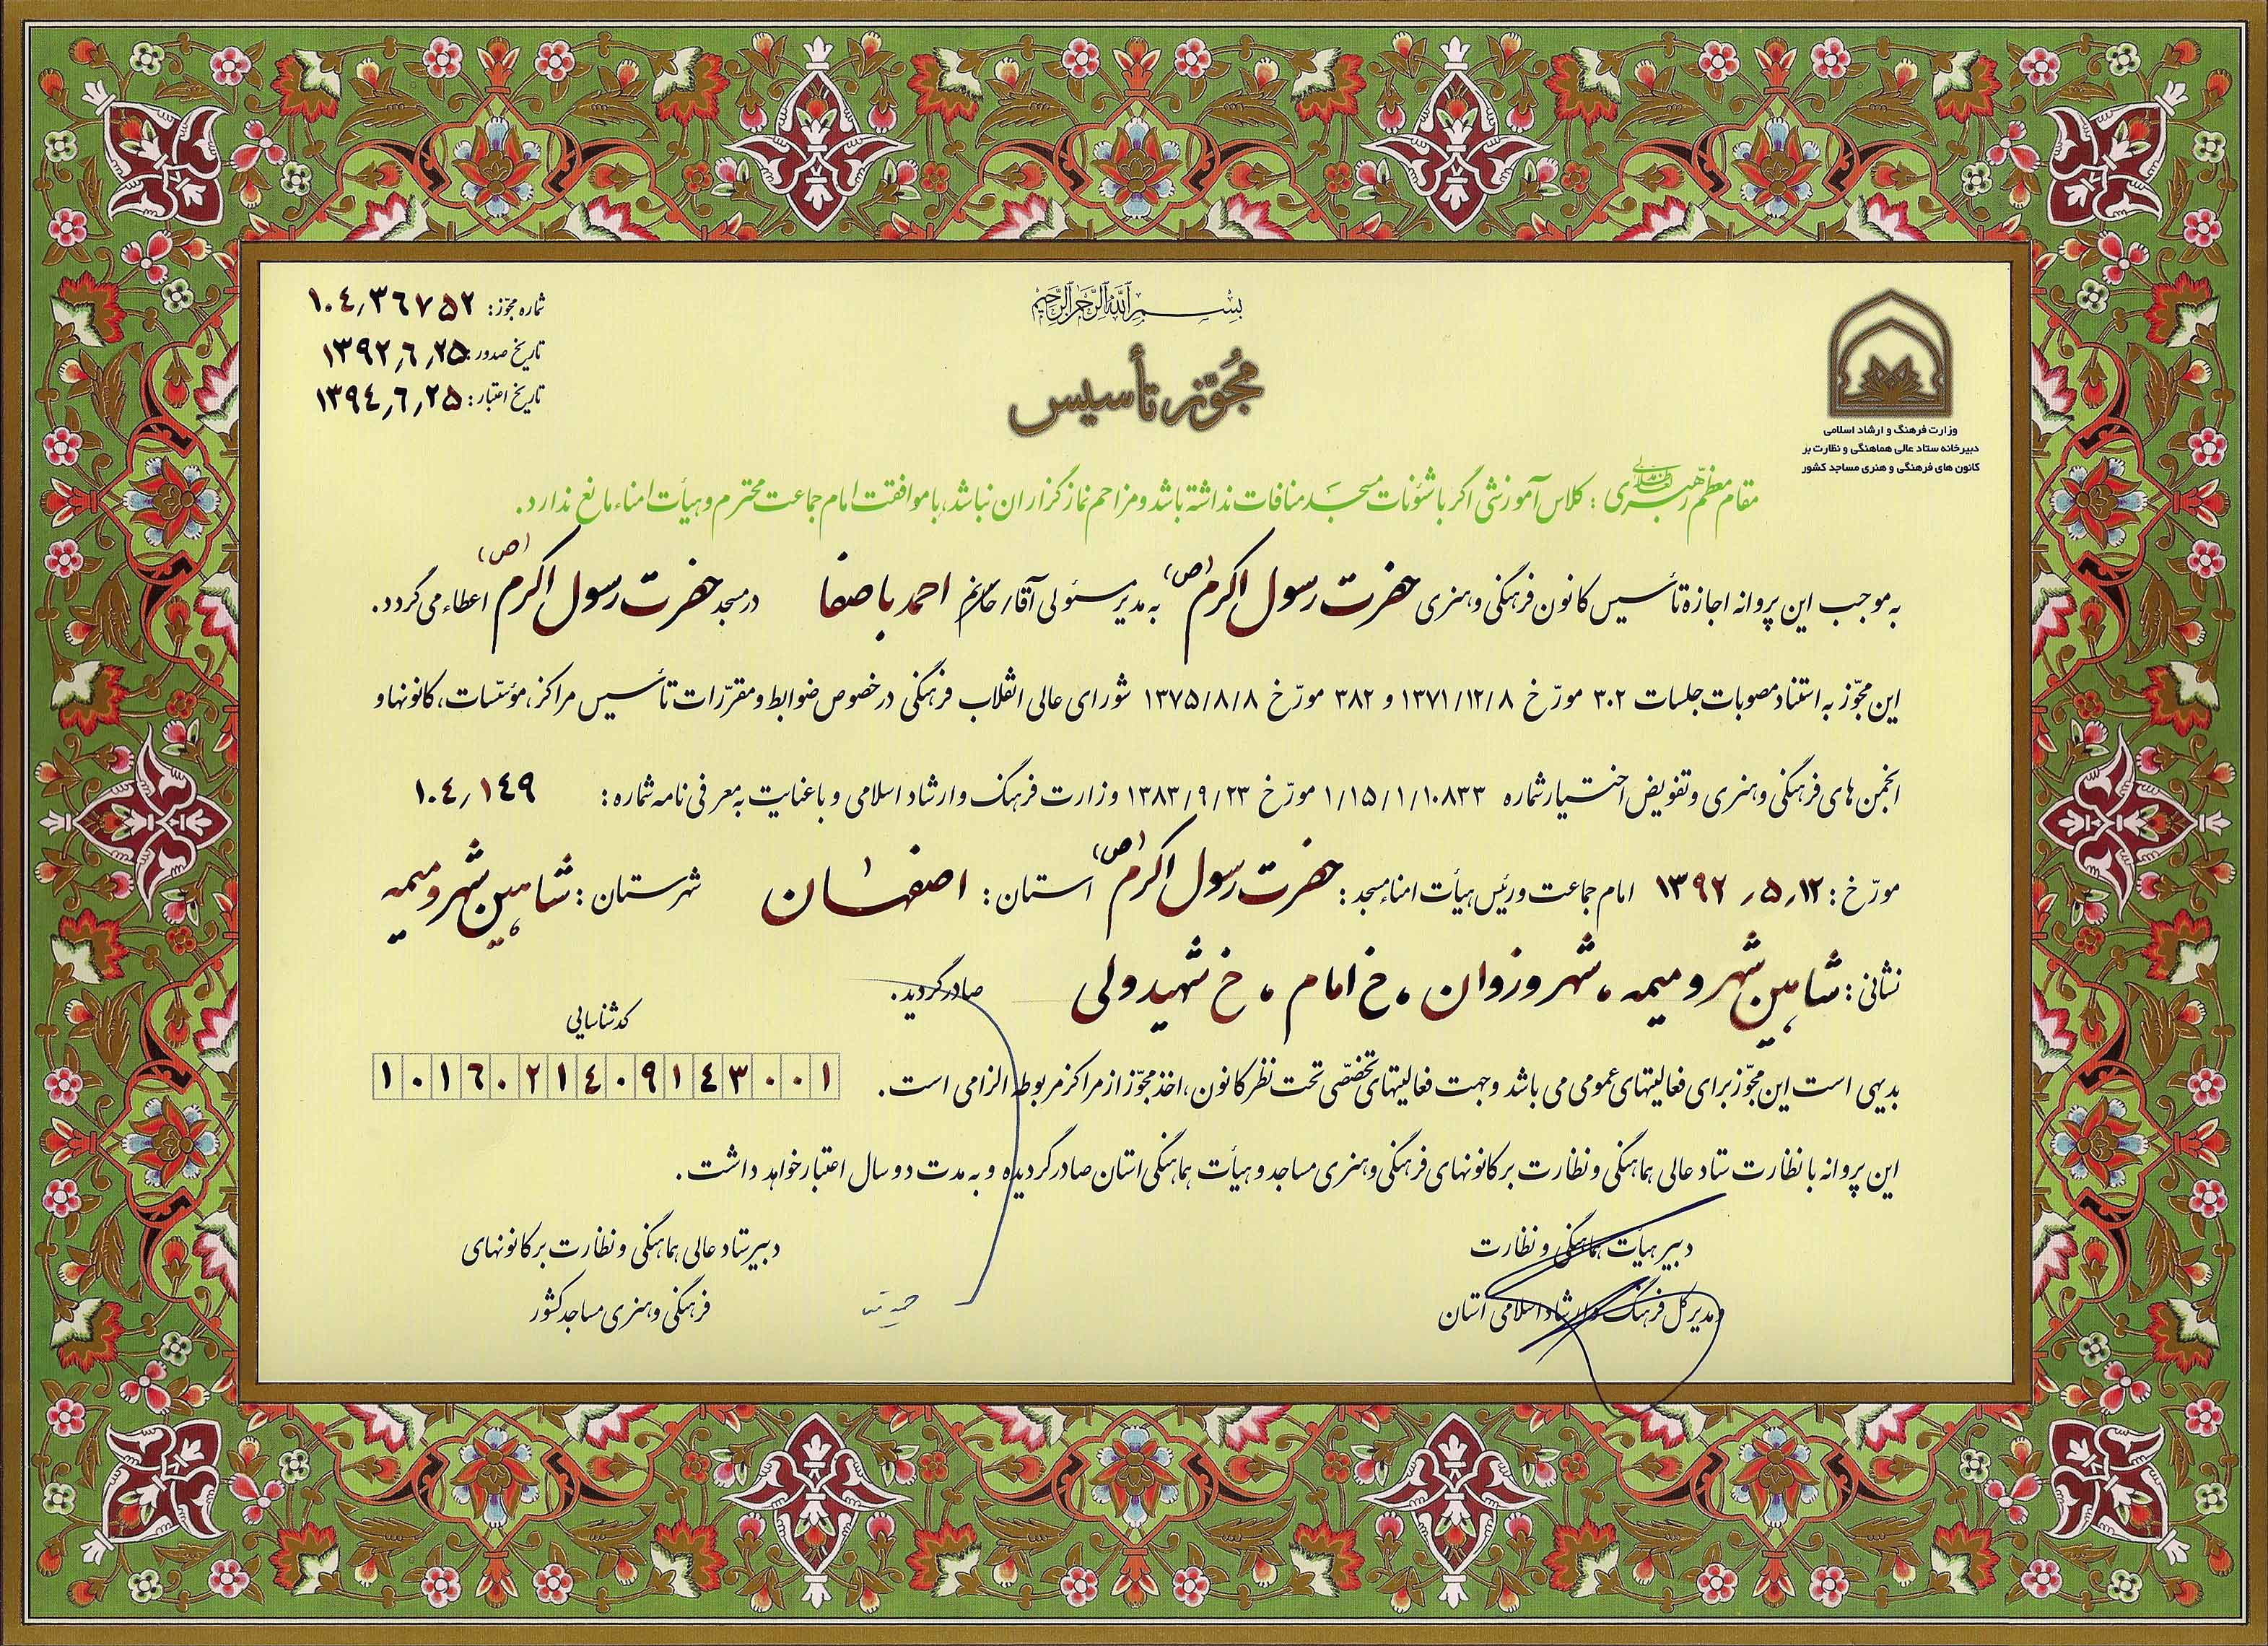 بسم الله الرحمن الرحیم
مُجوّز تأسیس
وزارت فرهنگ و ارشاد اسلامی
دبیرخانه ستاد عالی هماهنگی و نظارت بر
کانون های فرهنگی و هنری مساجد کشور
شماره مجوّز: ۱۰۴٫۳۶۷۵۲
تاریخ صدور: ۱۳۹۲٫۶٫۲۵
تاریخ اعتبار: ۱۳۹۴٫۶٫۲۵
مقام معظّم رهبری : کلاس آموزشی اگر با شئونات مسجد منافات نداشته باشد و مزاحم نمازگزاران نباشد، با موافقت امام جماعت محترم و هیأت امناء مانع ندارد.
به موجب این پروانه اجازه تأسیس کانون فرهنگی و هنری حضرت رسول اکرم (ص) به مدیر مسئولی آقا/ خانم احمد باصفا در مسجد حضرت رسول اکرم (ص) اعطاء می گردد.
این مجوّز به استناد مصوبات جلسات ۳۰۲ مورّخ ۱۳۷۱/۱۲/۸ و ۳۸۲ مورّخ ۱۳۷۵/۸/۸ شورای عالی انقلاب فرهنگی در خصوص ضوابط و مقرّرات تأسیس مراکز، مؤسّسات، کانونها و
انجمن های فرهنگی و هنری و تفویض اختیار شماره ۱/۱۵/۱/۱۰۸۳۳ مورّخ ۱۳۸۳/۹/۲۳ وزارت فرهنگ و ارشاد اسلامی و با عنایت به معرفی نامه شماره : ۱۰۴٫۱۴۹
مورّخ : ۱۳۹۲٫۵٫۱۲ امام جماعت و رئیس هیأت امناء مسجد : حضرت رسول اکرم (ص) استان : اصفهان شهرستان : شاهین شهر و میمه
نشانی : شاهین شهر و میمه ، شهر وزوان ، خ امام ، خ شهید ولی صادر گردید.
کد شناسایی
۱۰۱۶۰۲۱۴۰۹۱۴۳۰۰۱
بدیهی است این مجوّز برای فعالیتهای عمومی می باشد و جهت فعالیتهای تخصّصی تحت نظر کانون، اخذ مجوّز از مراکز مربوطه الزامی است.
این پروانه با نظارت ستاد عالی هماهنگی و نظارت بر کانونهای فرهنگی و هنری مساجد و هیأت هماهنگی استان صادر گردیده و به مدت دو سال اعتبار خواهد داشت.
دبیر هیأت هماهنگی و نظارت
و مدیر کل فرهنگ و ارشاد اسلامی استان
دبیر ستاد عالی هماهنگی و نظارت بر کانونهای
فرهنگی و هنری مساجد کشور